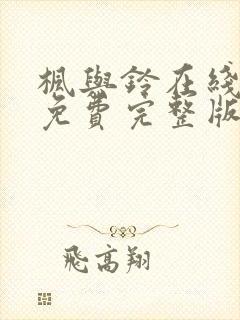 楓與鈴在綫
免費完整版
飛高翔